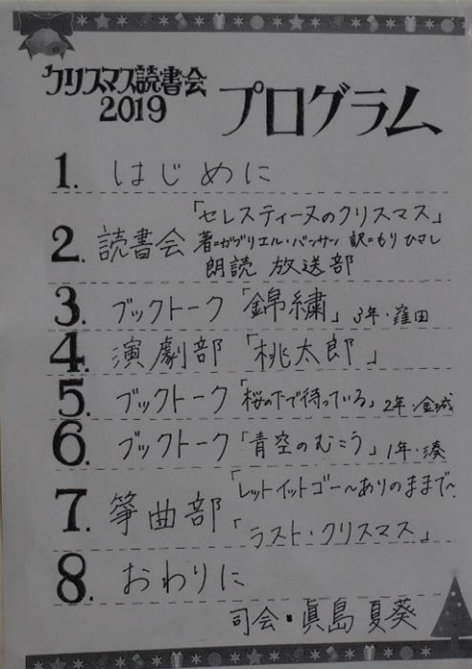 クリスマス読書会
2019
プログラム
1. はじめに
「セレスティーヌのクリスマス」
2. 読書会 著=ガブリエル・バンサン 訳=もり ひさし
朗読 放送部
3. ブックトーク「錦繍」3年・窪田
4. 演劇部「桃太郎」
5. ブックトーク「桜の下で待っている」2年・金城
6. ブックトーク「青空のむこう」1年・湊
「レットイットゴー〜ありのままで〜
7. 箏曲部
「ラスト・クリスマス」
8. おわりに
司会・眞島夏葵